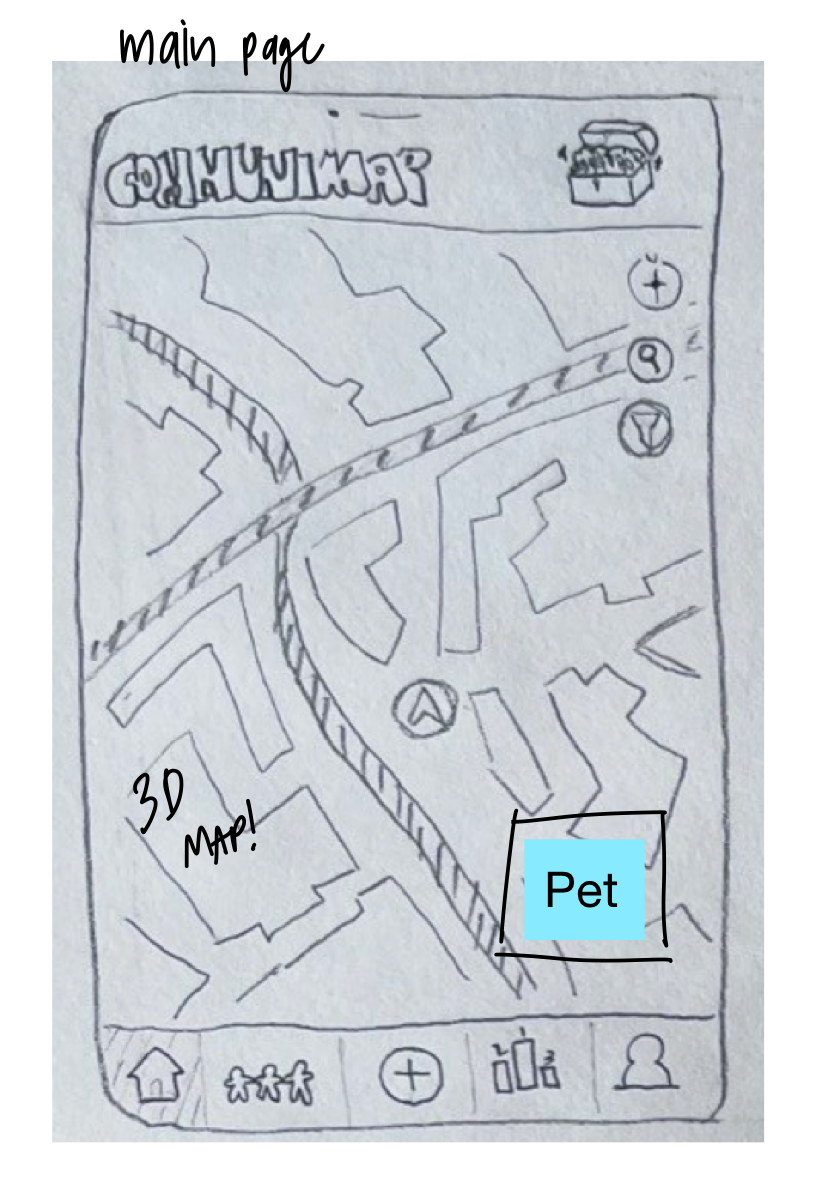 main page
COMMUNIMAP
3D
MAP!
Pet